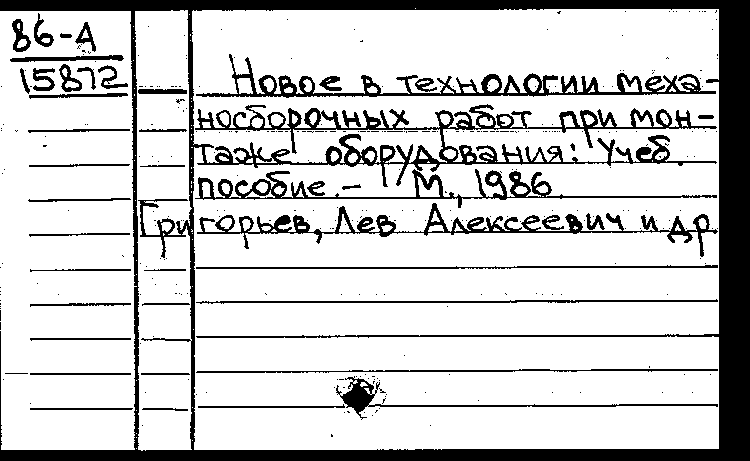 86-А
15872
Новое в технологии меха-
носборочных работ при мон-
таже оборудования: Учеб.
пособие. - М., 1986.
Григорьев, Лев Алексеевич и др.